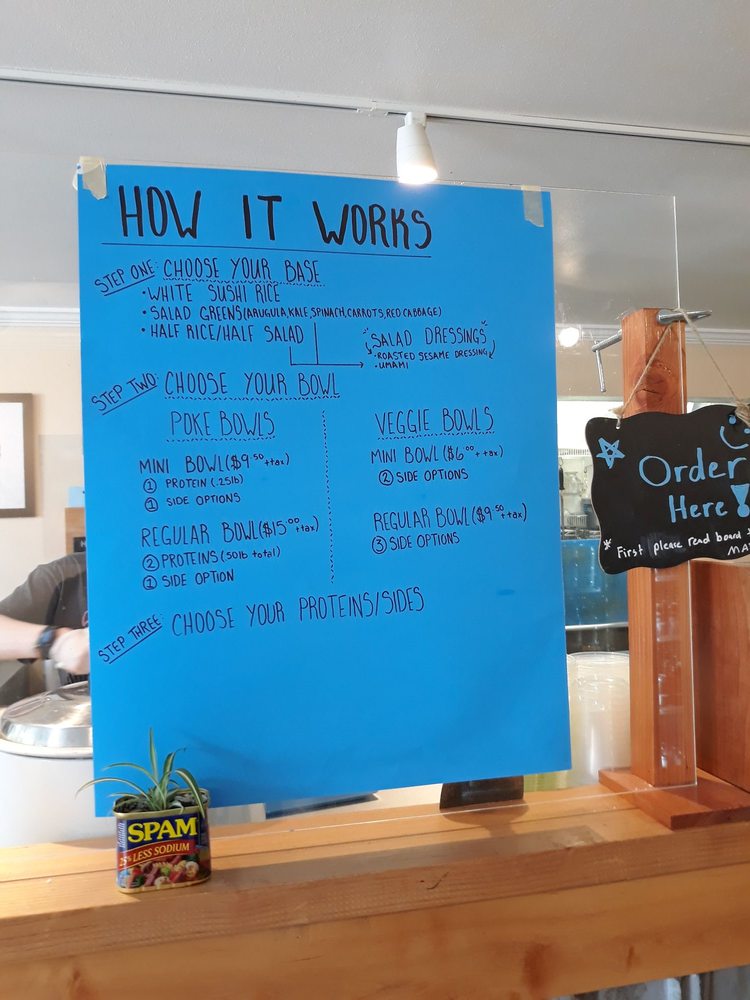 HOW IT WORKS
STEP ONE: CHOOSE YOUR BASE
• WHITE SUSHI RICE
• SALAD GREENS (ARUGULA, KALE, SPINACH, CARROTS, RED CABBAGE)
• HALF RICE/HALF SALAD
"SALAD DRESSINGS"
• ROASTED SESAME DRESSING
• UMAMI
STEP TWO: CHOOSE YOUR BOWL
POKE BOWLS
MINI BOWL ($9.50 + tax)
① PROTEIN (.25lb)
① SIDE OPTIONS
REGULAR BOWL ($15.00 + tax)
② PROTEINS (.50lb total)
① SIDE OPTION
VEGGIE BOWLS
MINI BOWL ($6.00 + tax)
② SIDE OPTIONS
REGULAR BOWL ($9.50 + tax)
③ SIDE OPTIONS
STEP THREE: CHOOSE YOUR PROTEINS/SIDES
Order
Here!
* First please read board *
MA
SPAM
25% LESS SODIUM